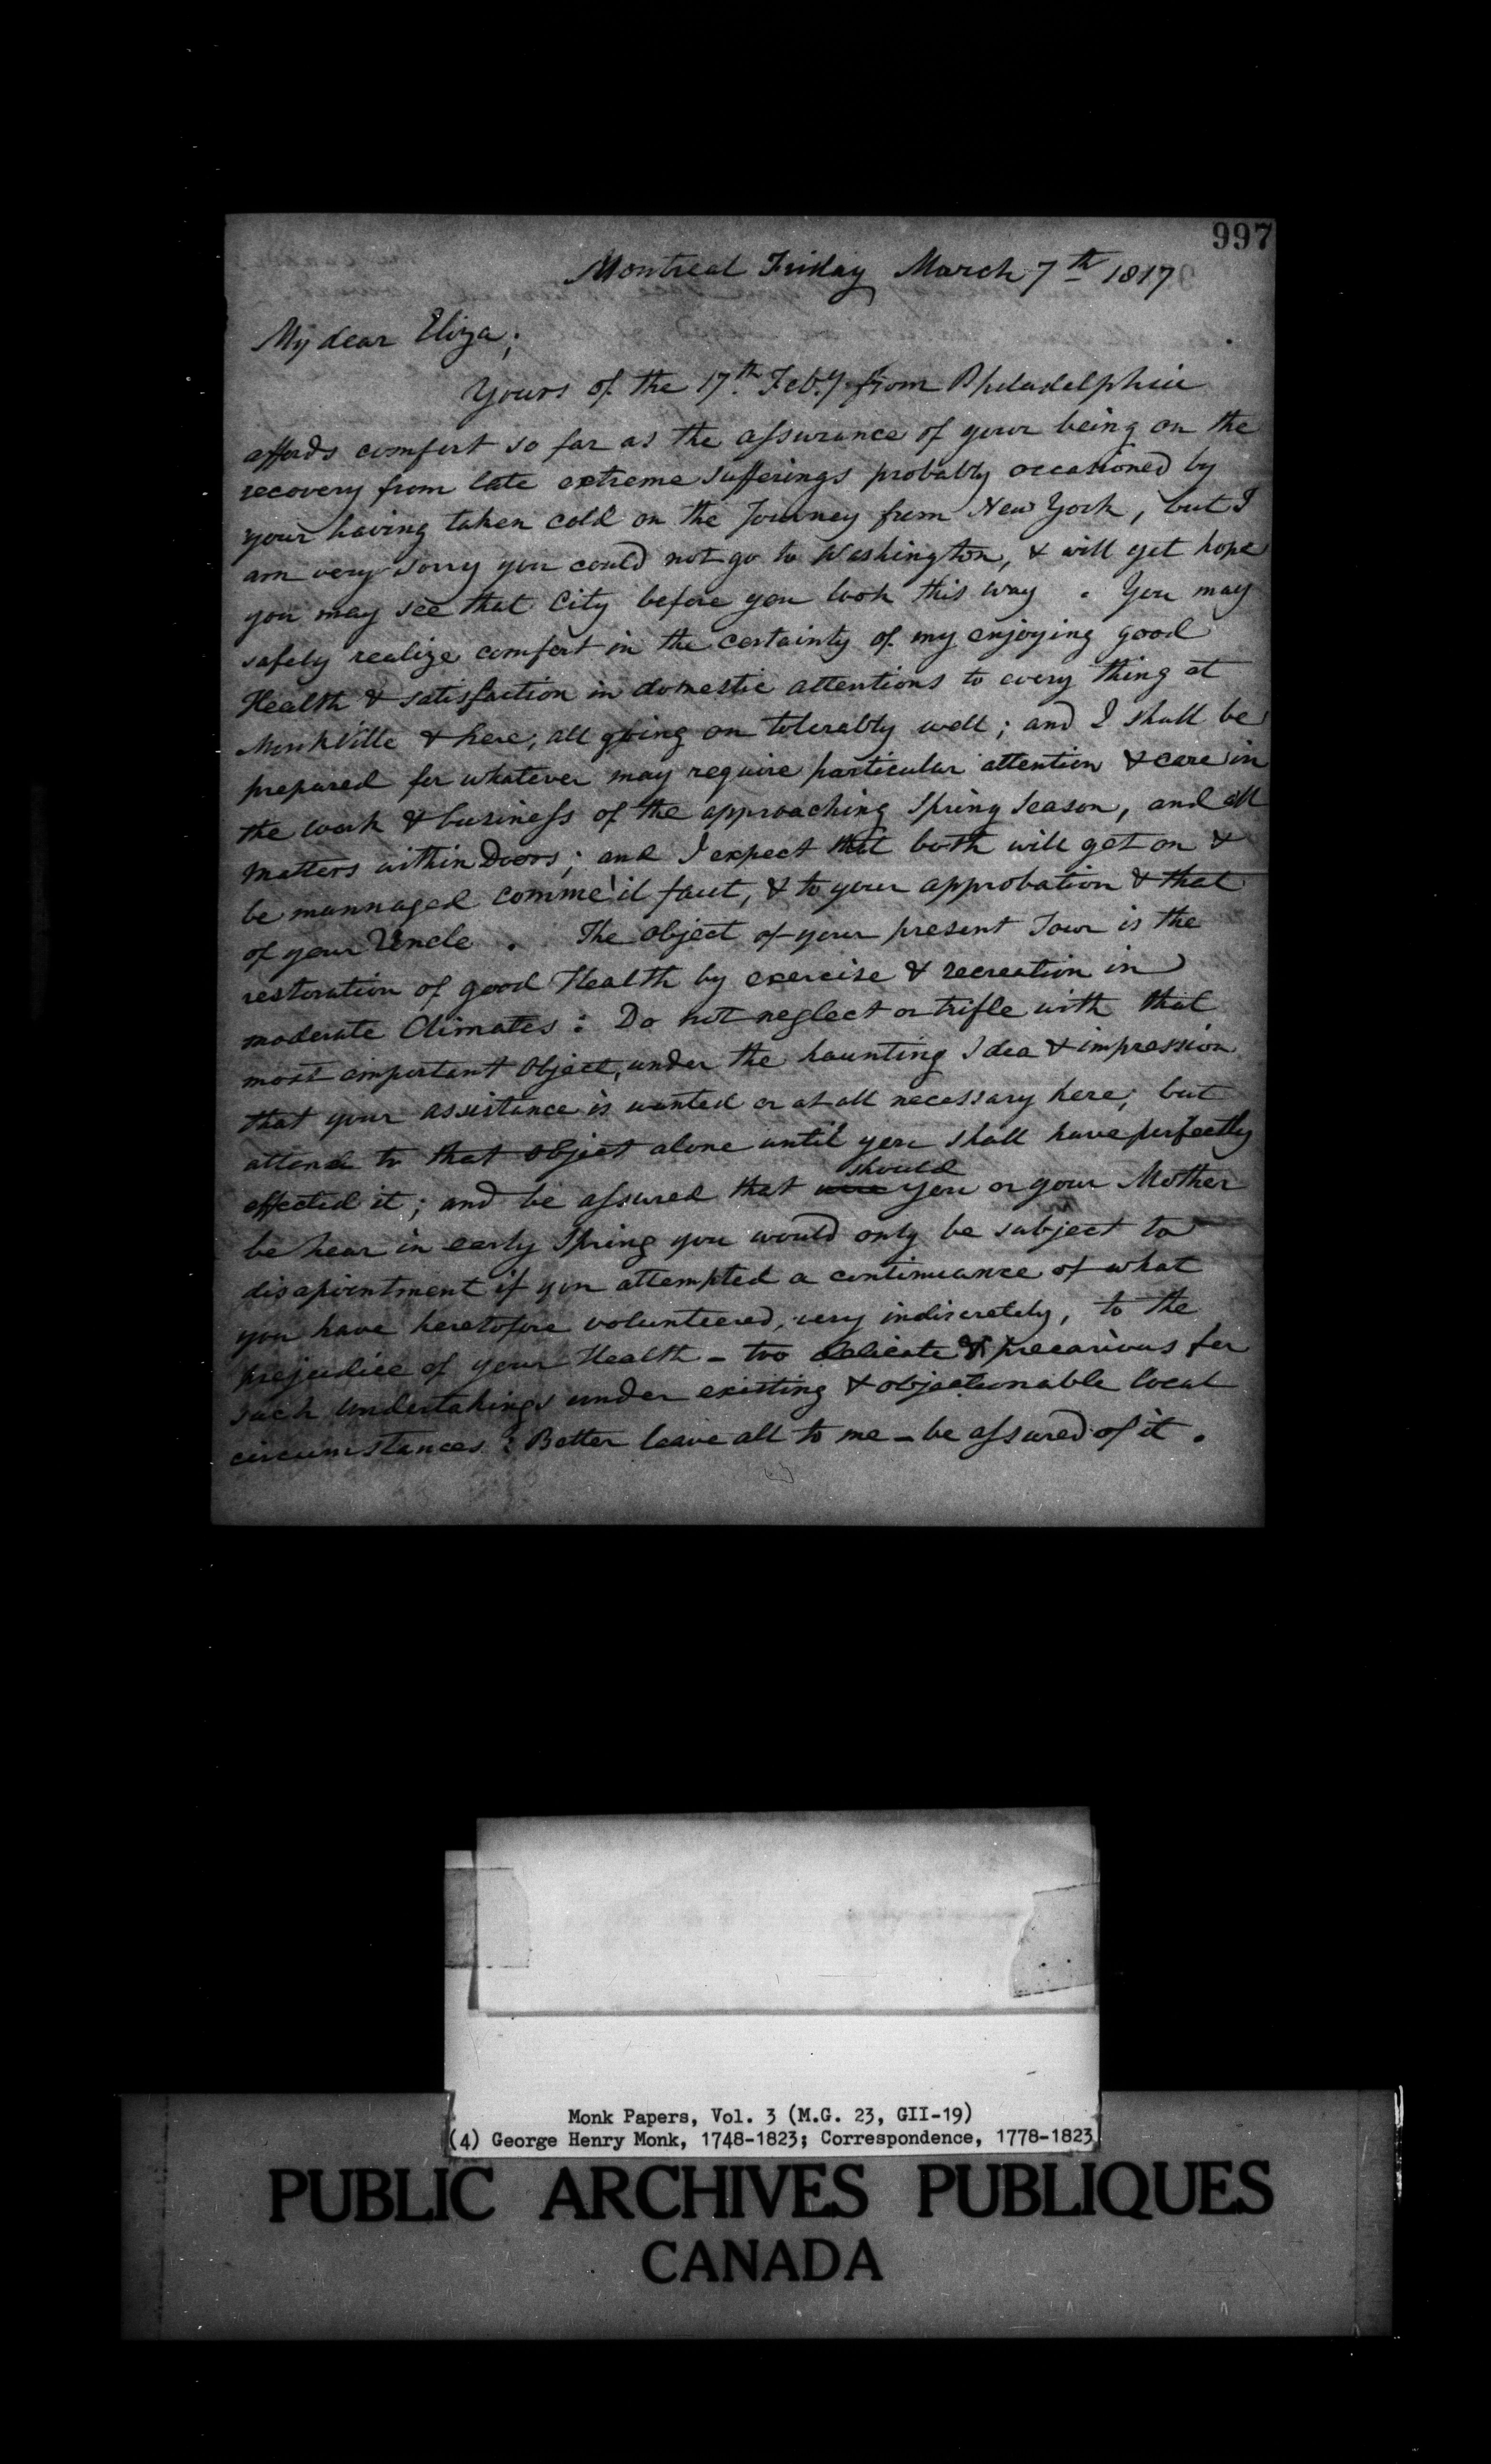 997
Montreal Friday March 7th 1817
My dear Eliza;
Yours of the 17th. Feby. from Philadelphia
affords comfort so far as the assurance of your being on the
recovery from late extreme sufferings probably occasioned by
your having taken cold on the Journey from New York, but I
am very sorry you could not go to Washington, & will yet hope
you may see that City before you look this way. You may
safely realize comfort in the certainty of my enjoying good
Health & satisfaction in domestic attentions to every thing at
MonkVille & here; all going on tolerably well; and I shall be
prepared for whatever may require particular attention & care in
the work & business of the approaching Spring Season, and all
matters within Doors; and I expect that both will get on &
be mannaged comme'il faut, & to your approbation & that
of your Uncle. The object of your present Tour is the
restoration of good Health by exercise & recreation in
moderate Climates: Do not neglect or trifle with that
most important Object, under the haunting Idea & impression
that your assistance is wanted or at all necessary here; but
attend to that object alone until you shall have perfectly
effected it; and be assured that were should you or your Mother
be hear in early Spring you would only be subject to
disapointment if you attempted a continuance of what
you have heretofore volunteered, very indiscretely, to the
prejudice of your Health - too delicate & precarious for
such undertakings under existing & objectionable local
circumstances: Better leave all to me - be assured of it.
Monk Papers, Vol. 3 (M.G. 23, GII-19)
(4) George Henry Monk, 1748-1823; Correspondence, 1778-1823
PUBLIC ARCHIVES PUBLIQUES
CANADA